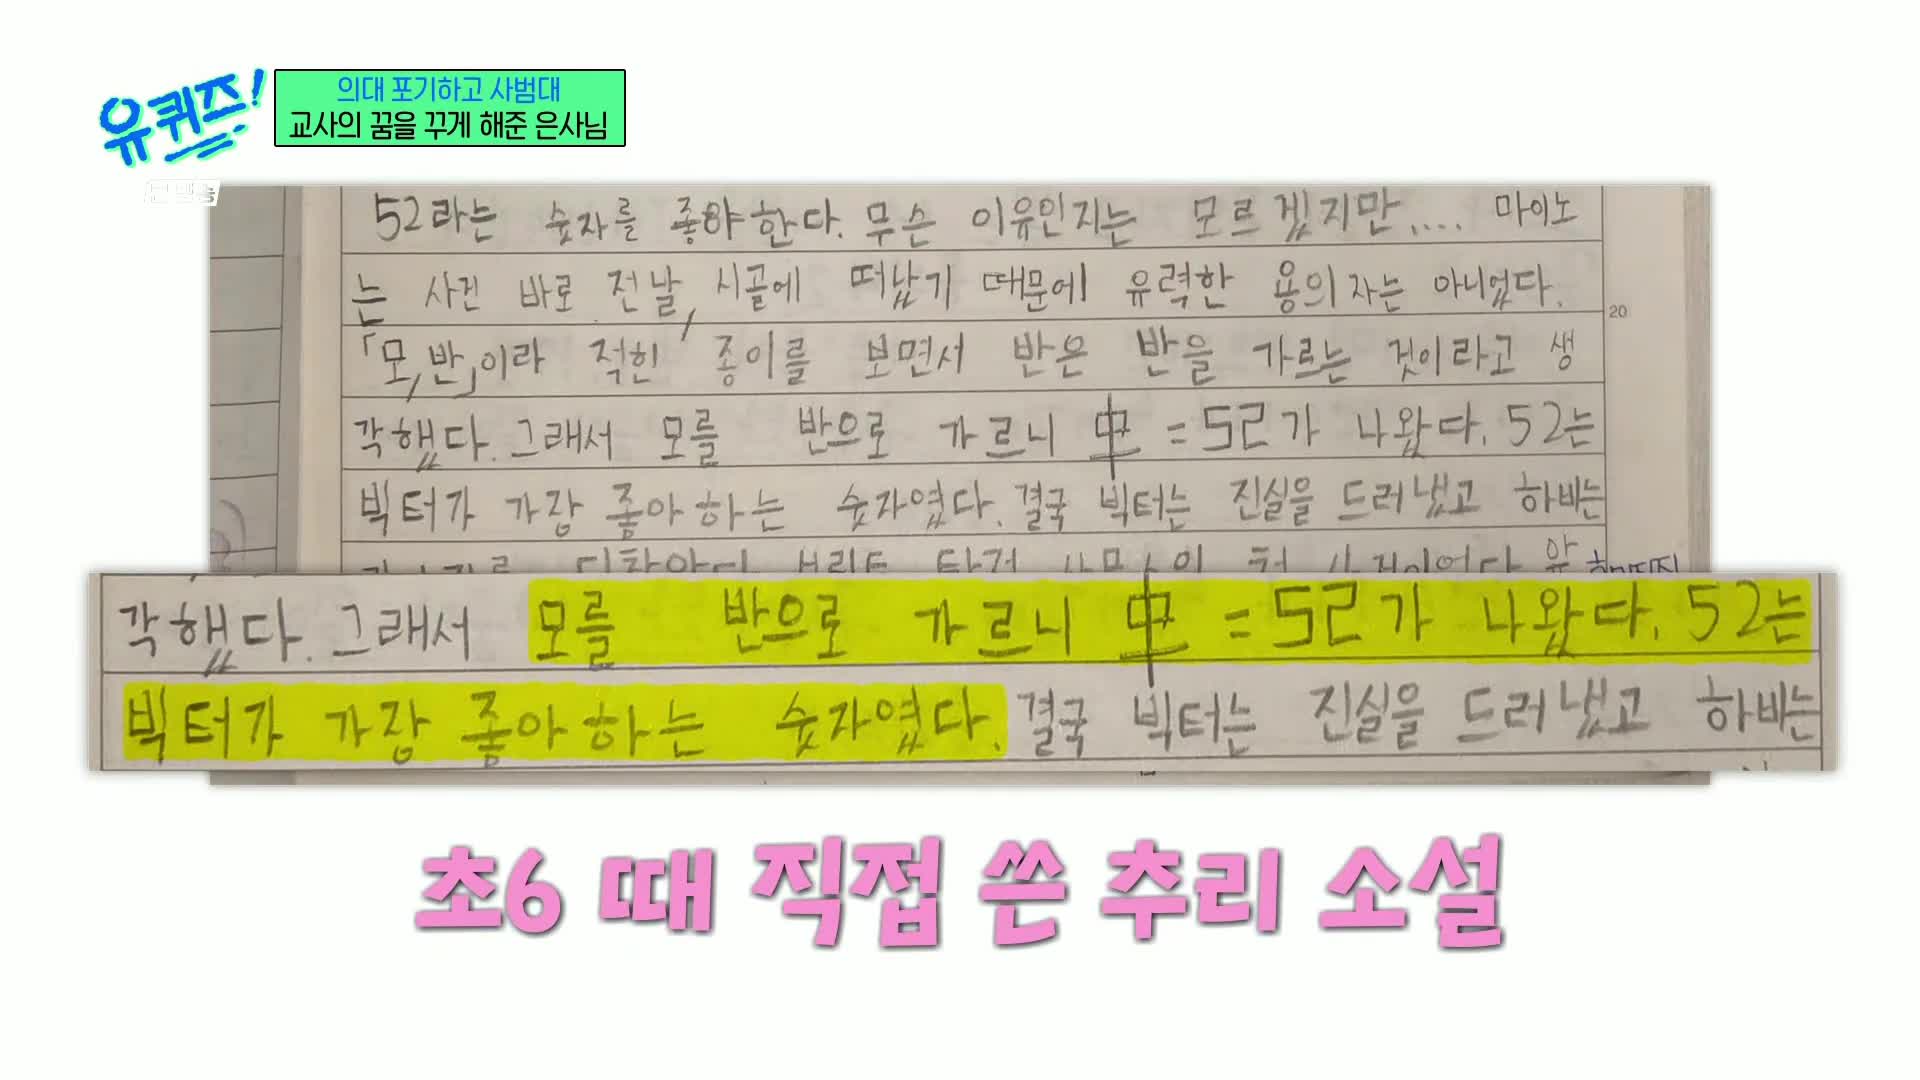 유퀴즈!
의대 포기하고 사범대
교사의 꿈을 꾸게 해준 은사님
본 방송
52라는 숫자를 좋아한다. 무슨 이유인지는 모르겠지만.... 마이노
는 사건 바로 전날, 시골에 떠났기 때문에 유력한 용의자는 아니었다.
20
「모, 반」이라 적힌 종이를 보면서 반은 반을 가르는 것이라고 생
각했다. 그래서 모를 반으로 가르니 모 = 52가 나왔다. 52는
빅터가 가장 좋아하는 숫자였다. 결국 빅터는 진실을 드러냈고 하바는
각했다. 그래서 모를 반으로 가르니 모 = 52가 나왔다. 52는
빅터가 가장 좋아하는 숫자였다. 결국 빅터는 진실을 드러냈고 하바는
초6 때 직접 쓴 추리 소설